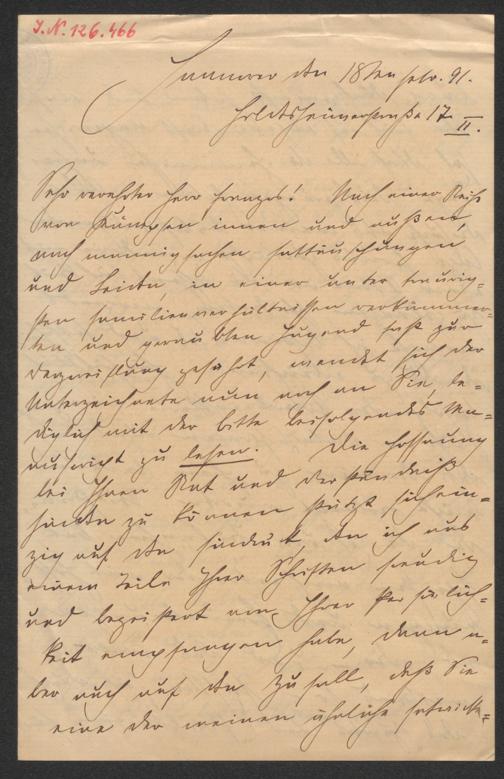 J.N. 126.466
Hannover den 18ten Febr. 91.
Hildesheimerstraße 17 II.
Sehr verehrter Herr Franzos! Nach einer Reihe
von Kämpfen innen und außen,
nach mannigfachen Enttäuschungen
und Leiden, in einer unter traurig-
sten Familienverhältnissen verkümmer-
ten und geraubten Jugend fast zur
Verzweiflung geführt, wendet sich der
Unterzeichnete nun noch an Sie le-
diglich mit der Bitte beifolgendes Ma-
nuscript zu lesen. Die Hoffnung
bei Ihnen Rat und Verständniß
finden zu können stützt sich ein-
zig auf den Eindruck, den ich aus
einem Teile Ihrer Schriften freudig
und begeistert von Ihrer Persönlich-
keit empfangen habe, dann a-
ber auch auf den Zufall, daß Sie
eine der meinen ähnliche Entwicke-